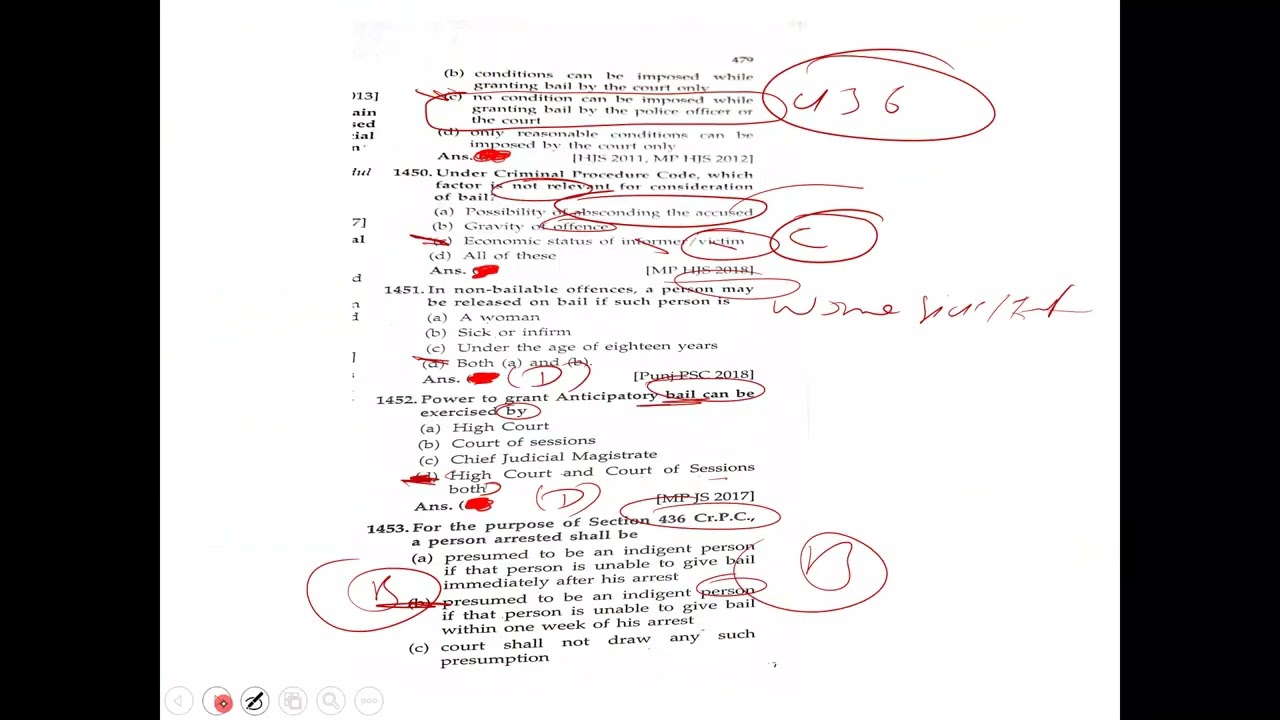 479
(b) conditions can be imposed while
granting bail by the court only
(c) no condition can be imposed while
granting bail by the police officer or
the court
436
(d) only reasonable conditions can be
imposed by the court only
Ans. [HJS 2011, MP HJS 2012]
1450. Under Criminal Procedure Code, which
factor is not relevant for consideration
of bail:
(a) Possibility of absconding the accused
(b) Gravity of offence
(c) Economic status of informer/victim
C
(d) All of these
Ans. [MP HJS 2018]
1451. In non-bailable offences, a person may
be released on bail if such person is
(a) A woman
(b) Sick or infirm
(c) Under the age of eighteen years
(d) Both (a) and (b).
Ans. (D) [Punj PSC 2018]
1452. Power to grant Anticipatory bail can be
exercised by
(a) High Court
(b) Court of sessions
(c) Chief Judicial Magistrate
(d) High Court and Court of Sessions
both
Ans. (D) [MP JS 2017]
1453. For the purpose of Section 436 Cr.P.C.,
a person arrested shall be
(a) presumed to be an indigent person
if that person is unable to give bail
immediately after his arrest
B
B
(b) presumed to be an indigent person
if that person is unable to give bail
within one week of his arrest
(c) court shall not draw any such
presumption
013]
ain
sed
7]
al